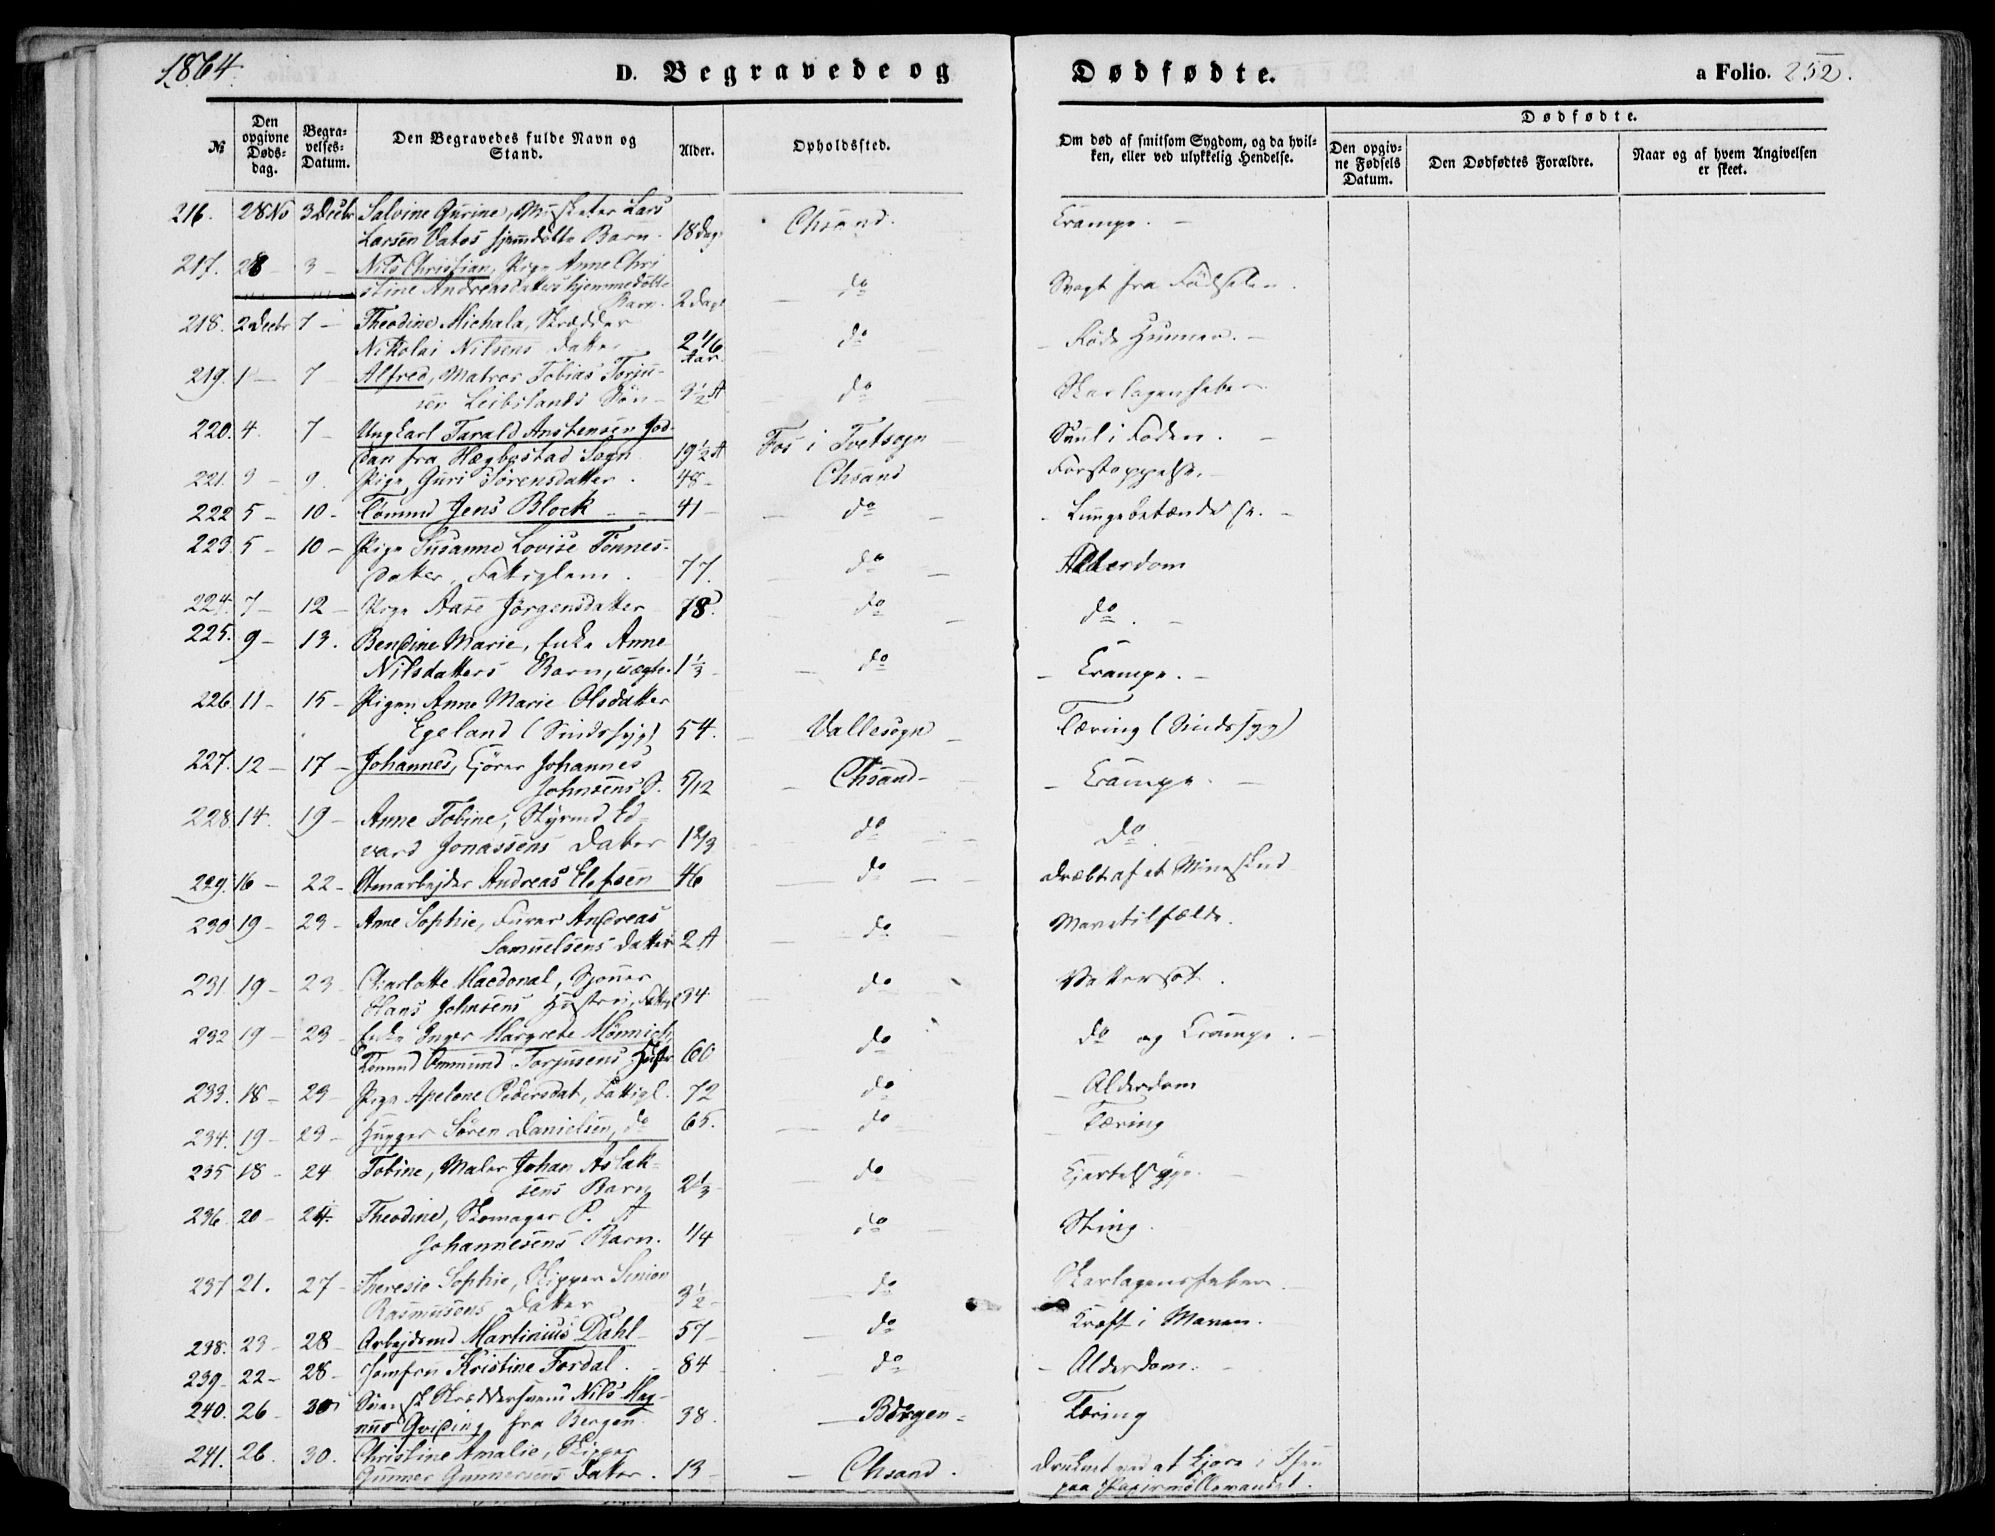 1864.
D. Begravede og Dødfødte. a Folio. 252.
№ Den opgivne Døds-dag. Begra-velses-Datum. Den Begravedes fulde Navn og Stand. Alder. Opholdssted. Om død af smitsom Sygdom, og da hvil-ken, eller ved ulykkelig Hendelse. Dødfødte.
Den opgiv-ne Fødsels Datum. Den Dødfødtes Forældre. Naar og af hvem Angivelsen er skeet.
216. 28 No 3 Decbr Salvine Gurine, Musketer Lars
Larsen Vatøs hjemdøbte Barn. 18 Dag. Chsand. Crampe. -
217. 28 3 - Nils Christian, Pige Anne Chri
stine Andreasdatters hjemmedøbte
Barn. 2 Dage - do Svagt fra Fødselen.
218. 2 Decbr 7 - Theodine Michala, Skrædder
Nikolai Nilsens Datter 2 1/6 Aar - do - Røde Hunner. -
219. 1 - 7 - Alfred, Matros Tobias Torju-
sen Leibslands Søn - 3½ A - do - Skarlagensfeber
220. 4. 7 - Ungkarl Tarald Anstensen God-
dan fra Hægbostad Sogn 19½ A Fos i Tvetsogn Suul i Foden. -
221. 3 - 9. Pige Guri Sørensdatter. 48 - Chsand Forstoppelse. -
222 5 - 10 - Tømmd Jens Block - - 41 - do - - Lungebetændelse. -
223. 5 - 10 - Pige Susanne Lovise Tønnes-
datter, Fattiglem. 77. - do - Alderdom
224. 7 - 12 - Pige Aase Jørgensdatter 78. do - do . -
225. 9 - 13. Bendine Marie, Enke Anne
Nilsdatters Barn, uægte. 1⅓ - do - Crampe. -
226. 11 - 15 - Pigen Anne Marie Olsdatter
Egeland (Sindssyg) 54. - Vallesogn - Tæring (Sindssyg)
227. 12 - 17 - Johannes, Kjører Johannes
Johnsens S. 5/12 - Chsand - - Crampe. -
228. 14. 19 - Anne Tobine, Styrmd Ed-
vard Jonassens Datter 1 2/3 do do.
229. 16 - 22 - Stenarbejder Andreas Elefsen 46 - do - - dræbt af et Mineskud
230. 19 - 23 - Anne Sophie, Furer Andreas
Samuelsens Datter 2 A - do - Mavetilfælde.
231. 19 - 23 - Charlotte Macdonal, Sjouer
Hans Johnsens Hustru, Fattigl 34. do Vattersot.
232. 19 - 23 - Enke Inger Margrete Mönnich,
Tømmd Ommund Torjusens Hustr 60 do do og Crampe. -
233. 18 - 23 - Pige Apelone Pedersdat, Fattigl. 72 do - Alderdom
234. 19 - 23 - Hugger Søren Danielsen, do 65. - do - Tæring
235 18 - 24 Tobine, Maler Johan Aslak-
sens Barn 2⅓ - do Kjertelsyge. -
236. 20 - 24. Theodine, Skomager P. A
Johannesens Barn. 1/4 do - Sting.
237 21. 27 - Theresie Sophie, Skipper Simon
Rasmusens Datter 3½ - - do Skarlagensfeber -
238. 23 - 28 - Arbejdsmd Martinius Dahl 57 - - do Kræft i Maven.
239. 22 - 28 - Jomfru Kristine Fordal. - 84 - do - Alderdom. -
240. 26 - 30 Skræddersvend Nils Mag-
nus Qviding fra Bergen 38. - Bergen - Tæring
241. 26. 30. Christine Amalie, Skipper
Gunner Gunnersens Datter. 13 - - Chsand. Druknet ved at kjøre i Isen
paa Papirmøllevandet.